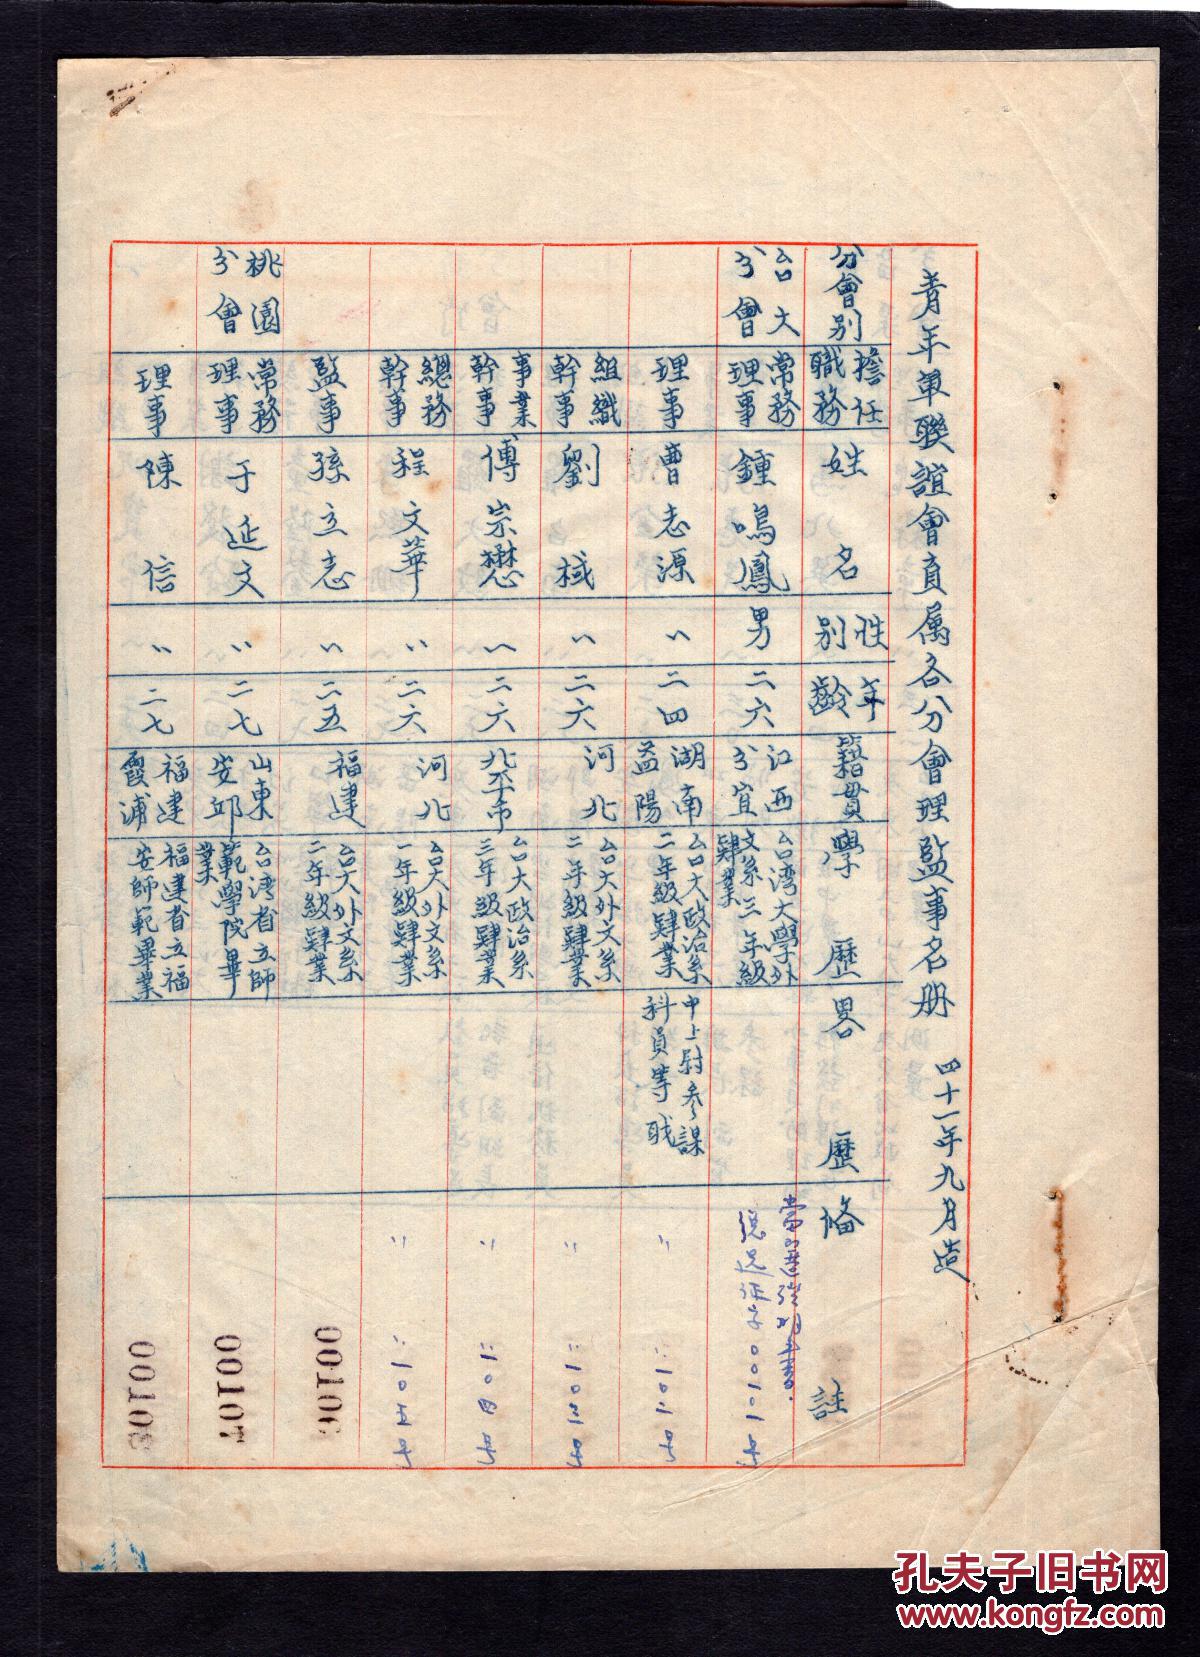 青年軍聯誼會直属各分會理監事名册　四十一年九月造
分會別　擔任職務　姓名　性別　年齡　籍貫　學歷　畧歷　俻註
台大分會　常務理事　鍾鳴鳳　男　二六　江西分宜　台湾大學外文系三年級肄業　當選證明書　字00101号
理事　曹志源　〃　二四　湖南益陽　台大政治系二年級肄業　中上尉参謀科員等职　〃　102号
組織幹事　劉棫　〃　二六　河北　台大外文系二年級肄業　〃　103号
事業幹事　傅崇懋　〃　二六　北平市　台大政治系三年級肄業　〃　10四号
總務幹事　程文華　〃　二六　河北　台大外文系一年級肄業　〃　105号
監事　孫立志　〃　二五　福建　台大外文系二年級肄業　00106
桃園分會　常務理事　于延文　〃　二七　山東安邱　台湾省立師範學院畢業　00107
理事　陳信　〃　二七　福建霞浦　福建省立福安師範畢業　00108
孔夫子旧书网
www.kongfz.com